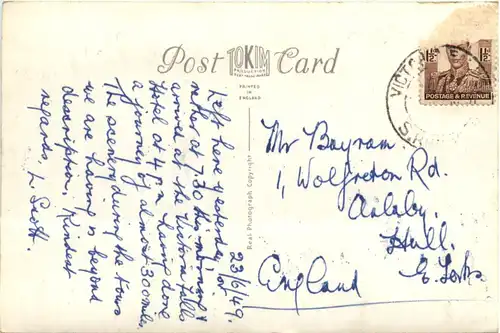 Post Card
TOKIM
PRODUCTION
PRINTED
IN
ENGLAND
Real Photograph Copyright
1½D
1½D
POSTAGE & REVENUE
VICTORIA
23/6/49.
Left here yesterday, or
rather at 7.30 this morning &
arrive at the Victoria Falls
Hotel at 4 p.m. having done
a journey of almost 300 miles.
The scenery during the tours
we are having is beyond
description, Kindest
regards, L. Scott.
Mr Bayram.
1, Wolfreton Rd.
Anlaby.
Hull.
E. Yorks
England